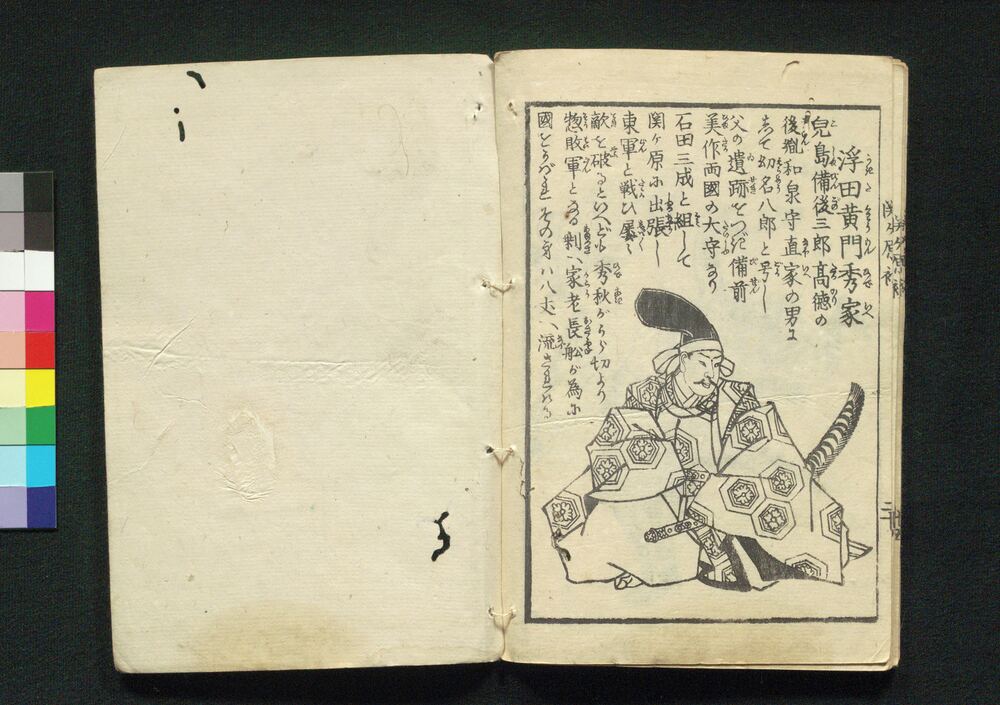 浮田黄門秀家
児島備後三郎高徳の
後胤和泉守直家の男に
して幼名八郎と号し
父の遺跡をつぎ備前
美作両國の大守なり
石田三成と組して
関ヶ原に出張し
東軍と戦ひ屡〻
敵を破るといへども秀秋がうら切より
惣敗軍となる剰へ家老長舩が為に
國をうばゝれその身ハ八丈へ流さ